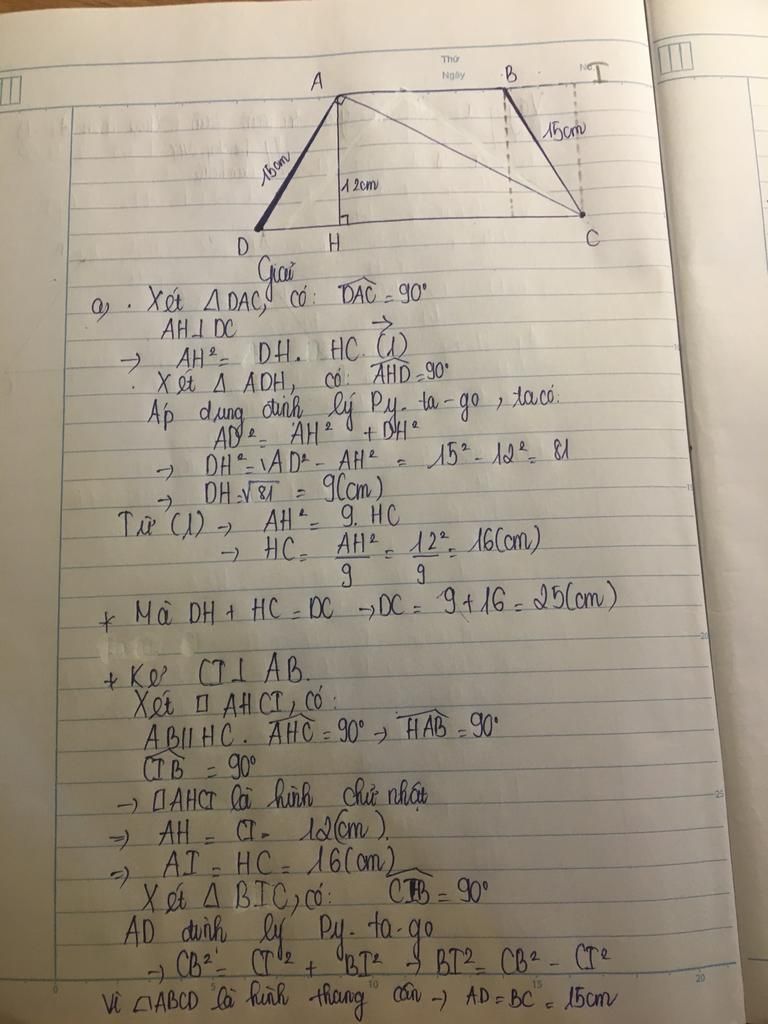 Thứ
Ngày
No.
A
B
I
15cm
12cm
15cm
D
H
C
Giải
a, . Xét △DAC, có: DAC = 90°
AH⊥DC
→ AH² = DH. HC. (1)
. Xét △ ADH, có: AHD = 90°
Áp dụng định lý Py-ta-go, ta có:
AD² = AH² + DH²
→ DH² = AD² - AH² = 15² - 12² = 81
→ DH = √81 = 9(cm)
Từ (1) → AH² = 9. HC
→ HC = AH²/9 = 12²/9 = 16(cm)
* Mà DH + HC = DC → DC = 9 + 16 = 25(cm)
+ Kẻ CI⊥AB.
Xét □ AHCI, có:
AB∥HC. AHC = 90° → HAB = 90°
CIB = 90°
→ □AHCI là hình chữ nhật
⇒ AH = CI = 12(cm).
⇒ AI = HC = 16(cm)
Xét △ BIC, có: CIB = 90°
AD định lý Py-ta-go
→ CB² = CI² + BI² → BI² = CB² - CI²
Vì ABCD là hình thang cân → AD = BC = 15cm
5
10
15
20
20
25